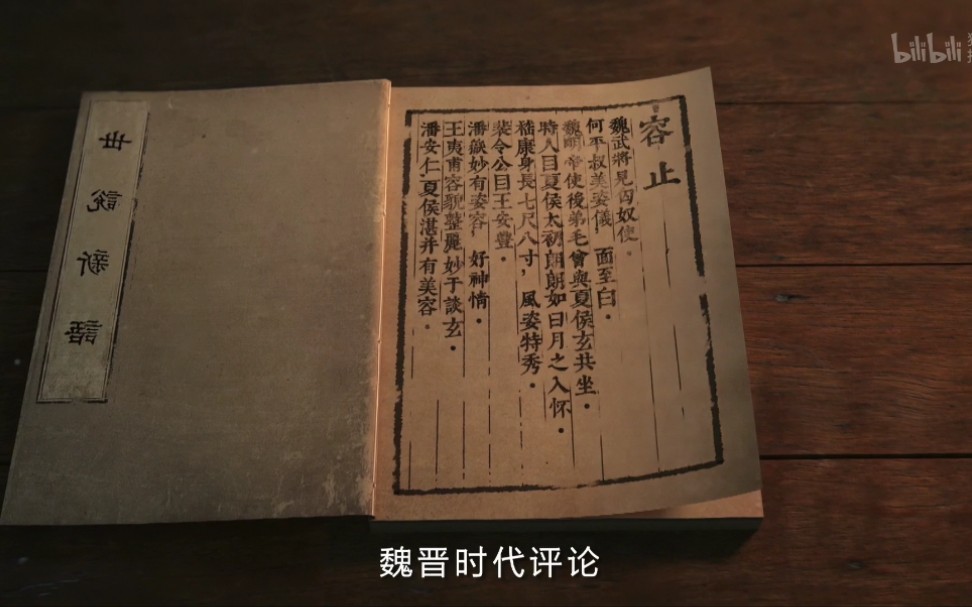 容止
魏武將見匈奴使。
何平叔美姿儀，面至白。
魏明帝使後弟毛曾與夏侯玄共坐。
時人目夏侯太初朗朗如日月之入怀。
嵇康身長七尺八寸，風姿特秀。
裴令公目王安豊。
潘嶽妙有姿容，好神情。
王夷甫容貌整麗妙于談玄。
潘安仁夏侯湛并有美容。
世說新語
bilibili
魏晋时代评论